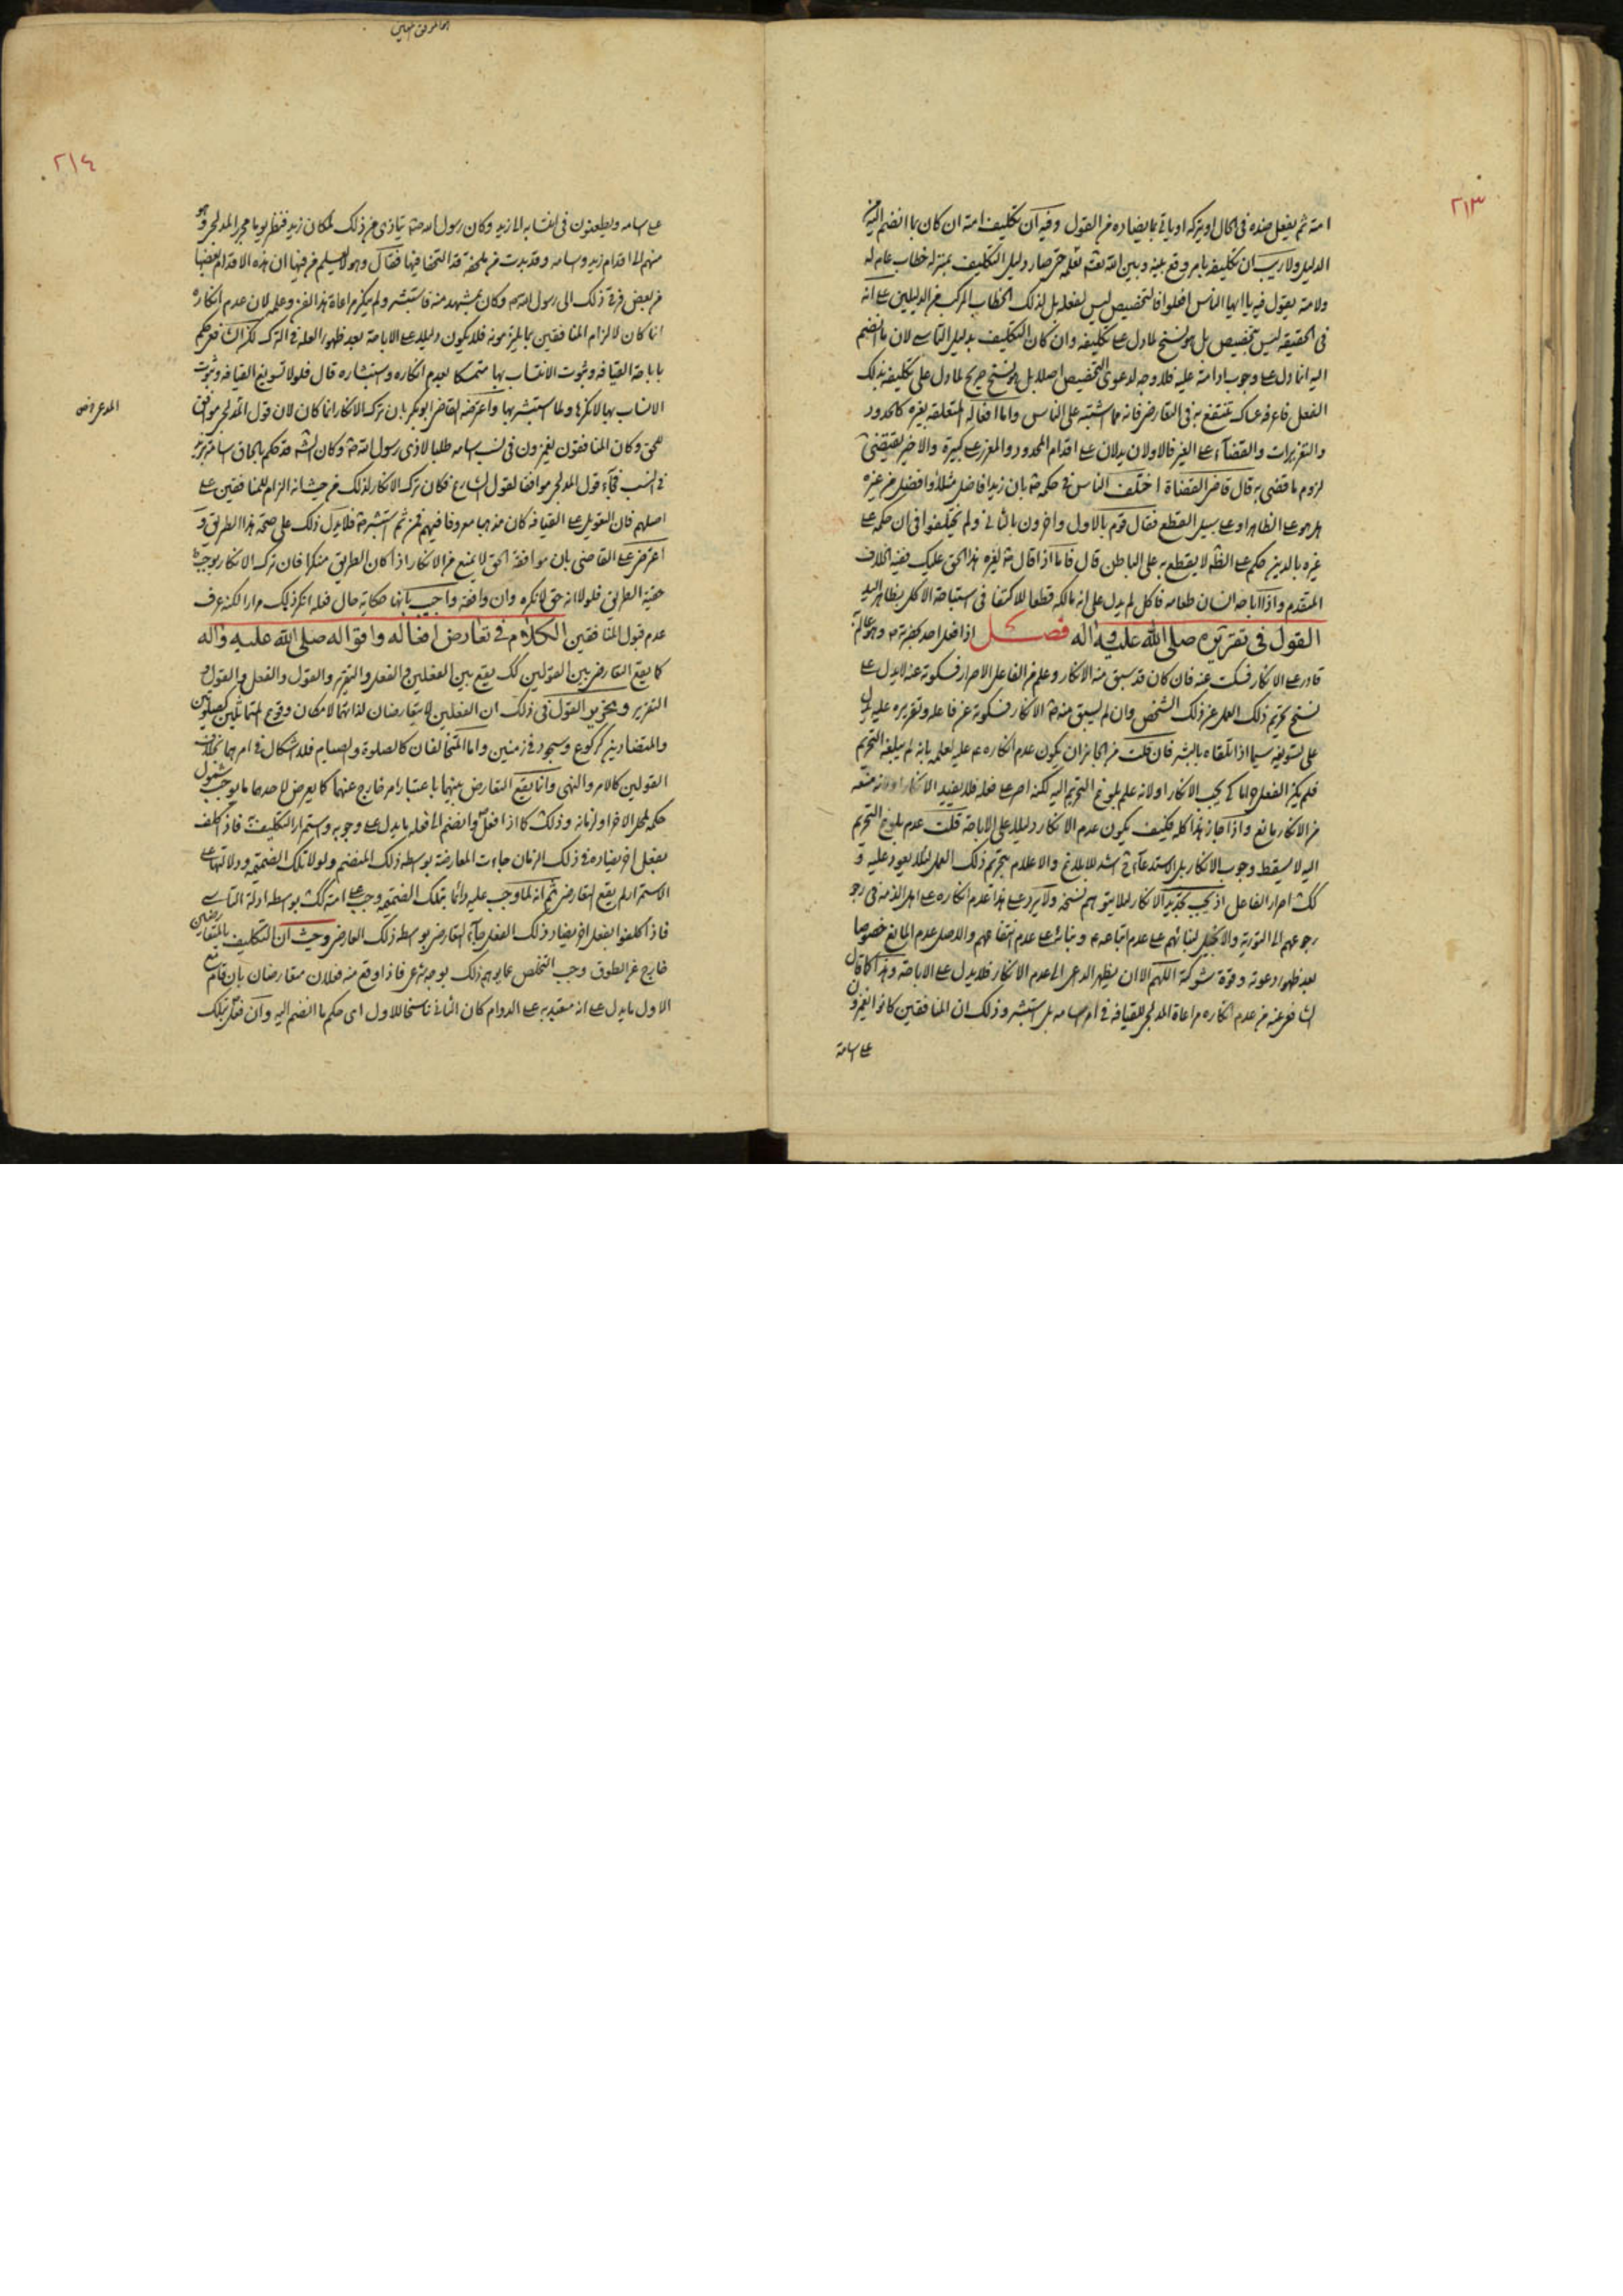 ٢١٣
امته ثم يفعل ضده في الحال او يتركه او ياتي بما يضاده من القول وفيه ان تكليف امته ان كان بما انضم اليه من
الدليل ولا ريب ان تكليفه بامر وقع بينه وبين الله تعلمه حتى صار دليل التكليف بمنزلة خطاب عام له
ولامته يقول فيه يا ايها الناس افعلوا فالتخصيص ليس لفعله بل لذلك الخطاب المركب من الدليلين على انه
في الحقيقة ليس بتخصيص بل هو نسخ لما دل على تكليفه وان كان التكليف بدليل التاسي لان ما انضم
اليه انما دل على وجوب ادامته عليه فلا وجه لدعوى التخصيص اصلا بل هو نسخ صريح لما دل على تكليفه بذلك
الفعل فاعرفه عساك تنتفع به في التعارض فانه مما اشتبه على الناس واما افعاله المتعلقة بغيره كالحدود
والتعزيرات والقضاء على الغير فالاولان يدلان على اقدام المحدود والمعزر على كبيرة والاخير يقتضي
لزوم ما قضى به قال قاضي القضاة اختلف الناس في حكمه بان زيدا فاضل مثلا او افضل من غيره
هل هو على الظاهر او على سبيل القطع فقال قوم بالاول واخرون بالثاني ولم يختلفوا في ان حكمه على
غيره بالدين حكم على الظاهر لا يقطع به على الباطن قال فاما اذا قال لغيره هذا الحق عليك ففيه الخلاف
المتقدم واذا اباحه انسان طعامه فاكل لم يدل على انه مالكه قطعا للاكتفاء في استباحة الاكل بظاهر اليد
القول في تقريره صلى الله عليه واله فصل اذا فعل احد بحضرته وهو عالم به
قادر على الانكار فسكت عنه فان كان قد سبق منه الانكار وعلم من الفاعل الاصرار فسكوته عنه لا يدل على
نسخ تحريم ذلك العمل عن ذلك الشخص وان لم يسبق منه الانكار فسكوته عن فاعله وتقريره عليه يدل
على تسويغه سيما اذا تلقاه بالبشر فان قلت من الجائز ان يكون عدم انكاره عليه لعلمه بانه لم يبلغه التحريم
فلم يكن الفعل حراما كي يجب الانكار او لانه علم بلوغ التحريم اليه لكنه اصر على فعله فلا يفيد الانكار او لانه منعه
من الانكار مانع واذا جاز هذا كله فكيف يكون عدم الانكار دليلا على الاباحة قلت عدم بلوغ التحريم
اليه لا يسقط وجوب الانكار بل الاستدعاء اشد للابلاغ والاعلام بتحريم ذلك العمل لئلا يعود عليه و
كك اصرار الفاعل اذ يجب تجديد الانكار لئلا يتوهم نسخه ولا يرد على هذا عدم انكاره على اهل الذمة في
رجوعهم الى التورية والانجيل لبنائهم على عدم اتباعه وبنائه على عدم انتفاعهم والاصل عدم المانع خصوصا
بعد ظهور دعوته وقوة شوكته اللهم الا ان يظهر الداعي الى عدم الانكار فلا يدل على الاباحة وهذا كما قال
الشافعي عنه من عدم انكاره مراعاة المدلجي للقيافة في امر اسامه بل استبشر وذلك ان المنافقين كانوا يغمزون
على اسامة
٢١٤
على اسامه ويطعنون في انتسابه الى زيد وكان رسول الله يتاذى من ذلك لمكان زيد فنظر يوما مجزز المدلجي وهو
منهم الى اقدام زيد واسامه وقد بدت من ملحفة قد التحفا فيها فقال وهو لا يعلم من فيها ان هذه الاقدام بعضها
من بعض فرقي ذلك الى رسول الله وكان بمشهد منه فاستبشر ولم ينكر مراعاة هذا الفن وعلمه لان عدم انكاره
انما كان لالزام المنافقين بما يلتزمونه فلا يكون دليلا على الاباحة بعد ظهور العلة في الترك لكن الشافعي حكم
باباحة القيافة وثبوت الانتساب بها متمسكا بعدم انكاره واستبشاره قال فلولا تسويغ القيافة وثبوت
الانساب بها لانكرها ولما استبشر بها واعترضه القاضي ابو بكر بان ترك الانكار انما كان لان قول المدلجي موافق
للحق وكان المنافقون يغمزون في نسب اسامه طلبا لاذى رسول الله وكان الشرع قد حكم بالحاق اسامة بزيد
في النسب فجاء قول المدلجي موافقا لقول الشارع فكان ترك الانكار لذلك من حيث انه الزام للمنافقين على
اصلهم فان التعويل على القيافة كان مذهبا معروفا فيهم فمن ثم استبشر فلا يدل ذلك على صحة هذا الطريق و
اعترض على القاضي بان موافقة الحق لا يمنع من الانكار اذا كان الطريق منكرا فان ترك الانكار يوجب
حقية الطريق فلولا انه حق لانكره وان وافقه واجيب بانها حكاية حال فعله انكر ذلك مرارا لكنه عرف
عدم قبول المنافقين الكلام في تعارض افعاله واقواله صلى الله عليه واله
كما يقع التعارض بين القولين كك يقع بين الفعلين والفعل والتقرير والقول والفعل والقول و
التقرير وتحرير القول في ذلك ان الفعلين لا يتعارضان لذاتهما لامكان وقوع المتماثلين كصلوتين
والمتضادين كركوع وسجود في زمنين واما المتخالفان كالصلوة والصيام فلا اشكال في امرهما بخلاف
القولين كالامر والنهي وانما يقع التعارض بينهما باعتبار امر خارج عنهما كما يعرض لاحدهما ما يوجب شمول
حكمه لمحل الاخر او لزمانه وذلك كما اذا فعل وانضم الى فعله ما يدل على وجوبه واستمرار التكليف به فاذا كلف
بفعل اخر يضاده في ذلك الزمان جاءت المعارضة بوسطه ذلك المنضم ولولا تلك الضميمة ودلالتها على
الاستمرار لم يقع التعارض ثم انه لما وجب عليه دائما بتلك الضميمة وجب على امته كك بوسطه ادلة التاسي
فاذا كلفوا بفعل اخر يضاد ذلك الفعل جاء التعارض بوسطه ذلك العارض وحيث ان التكليف بالمتعارضين
خارج عن الطوق وجب التخلص عما يوهم ذلك بوجه شرعي فاذا وقع منه فعلان متعارضان بان قام مع
الاول ما يدل على انه متعبد به على الدوام كان الثاني ناسخا للاول اي حكم ما انضم اليه وان فعل تلك